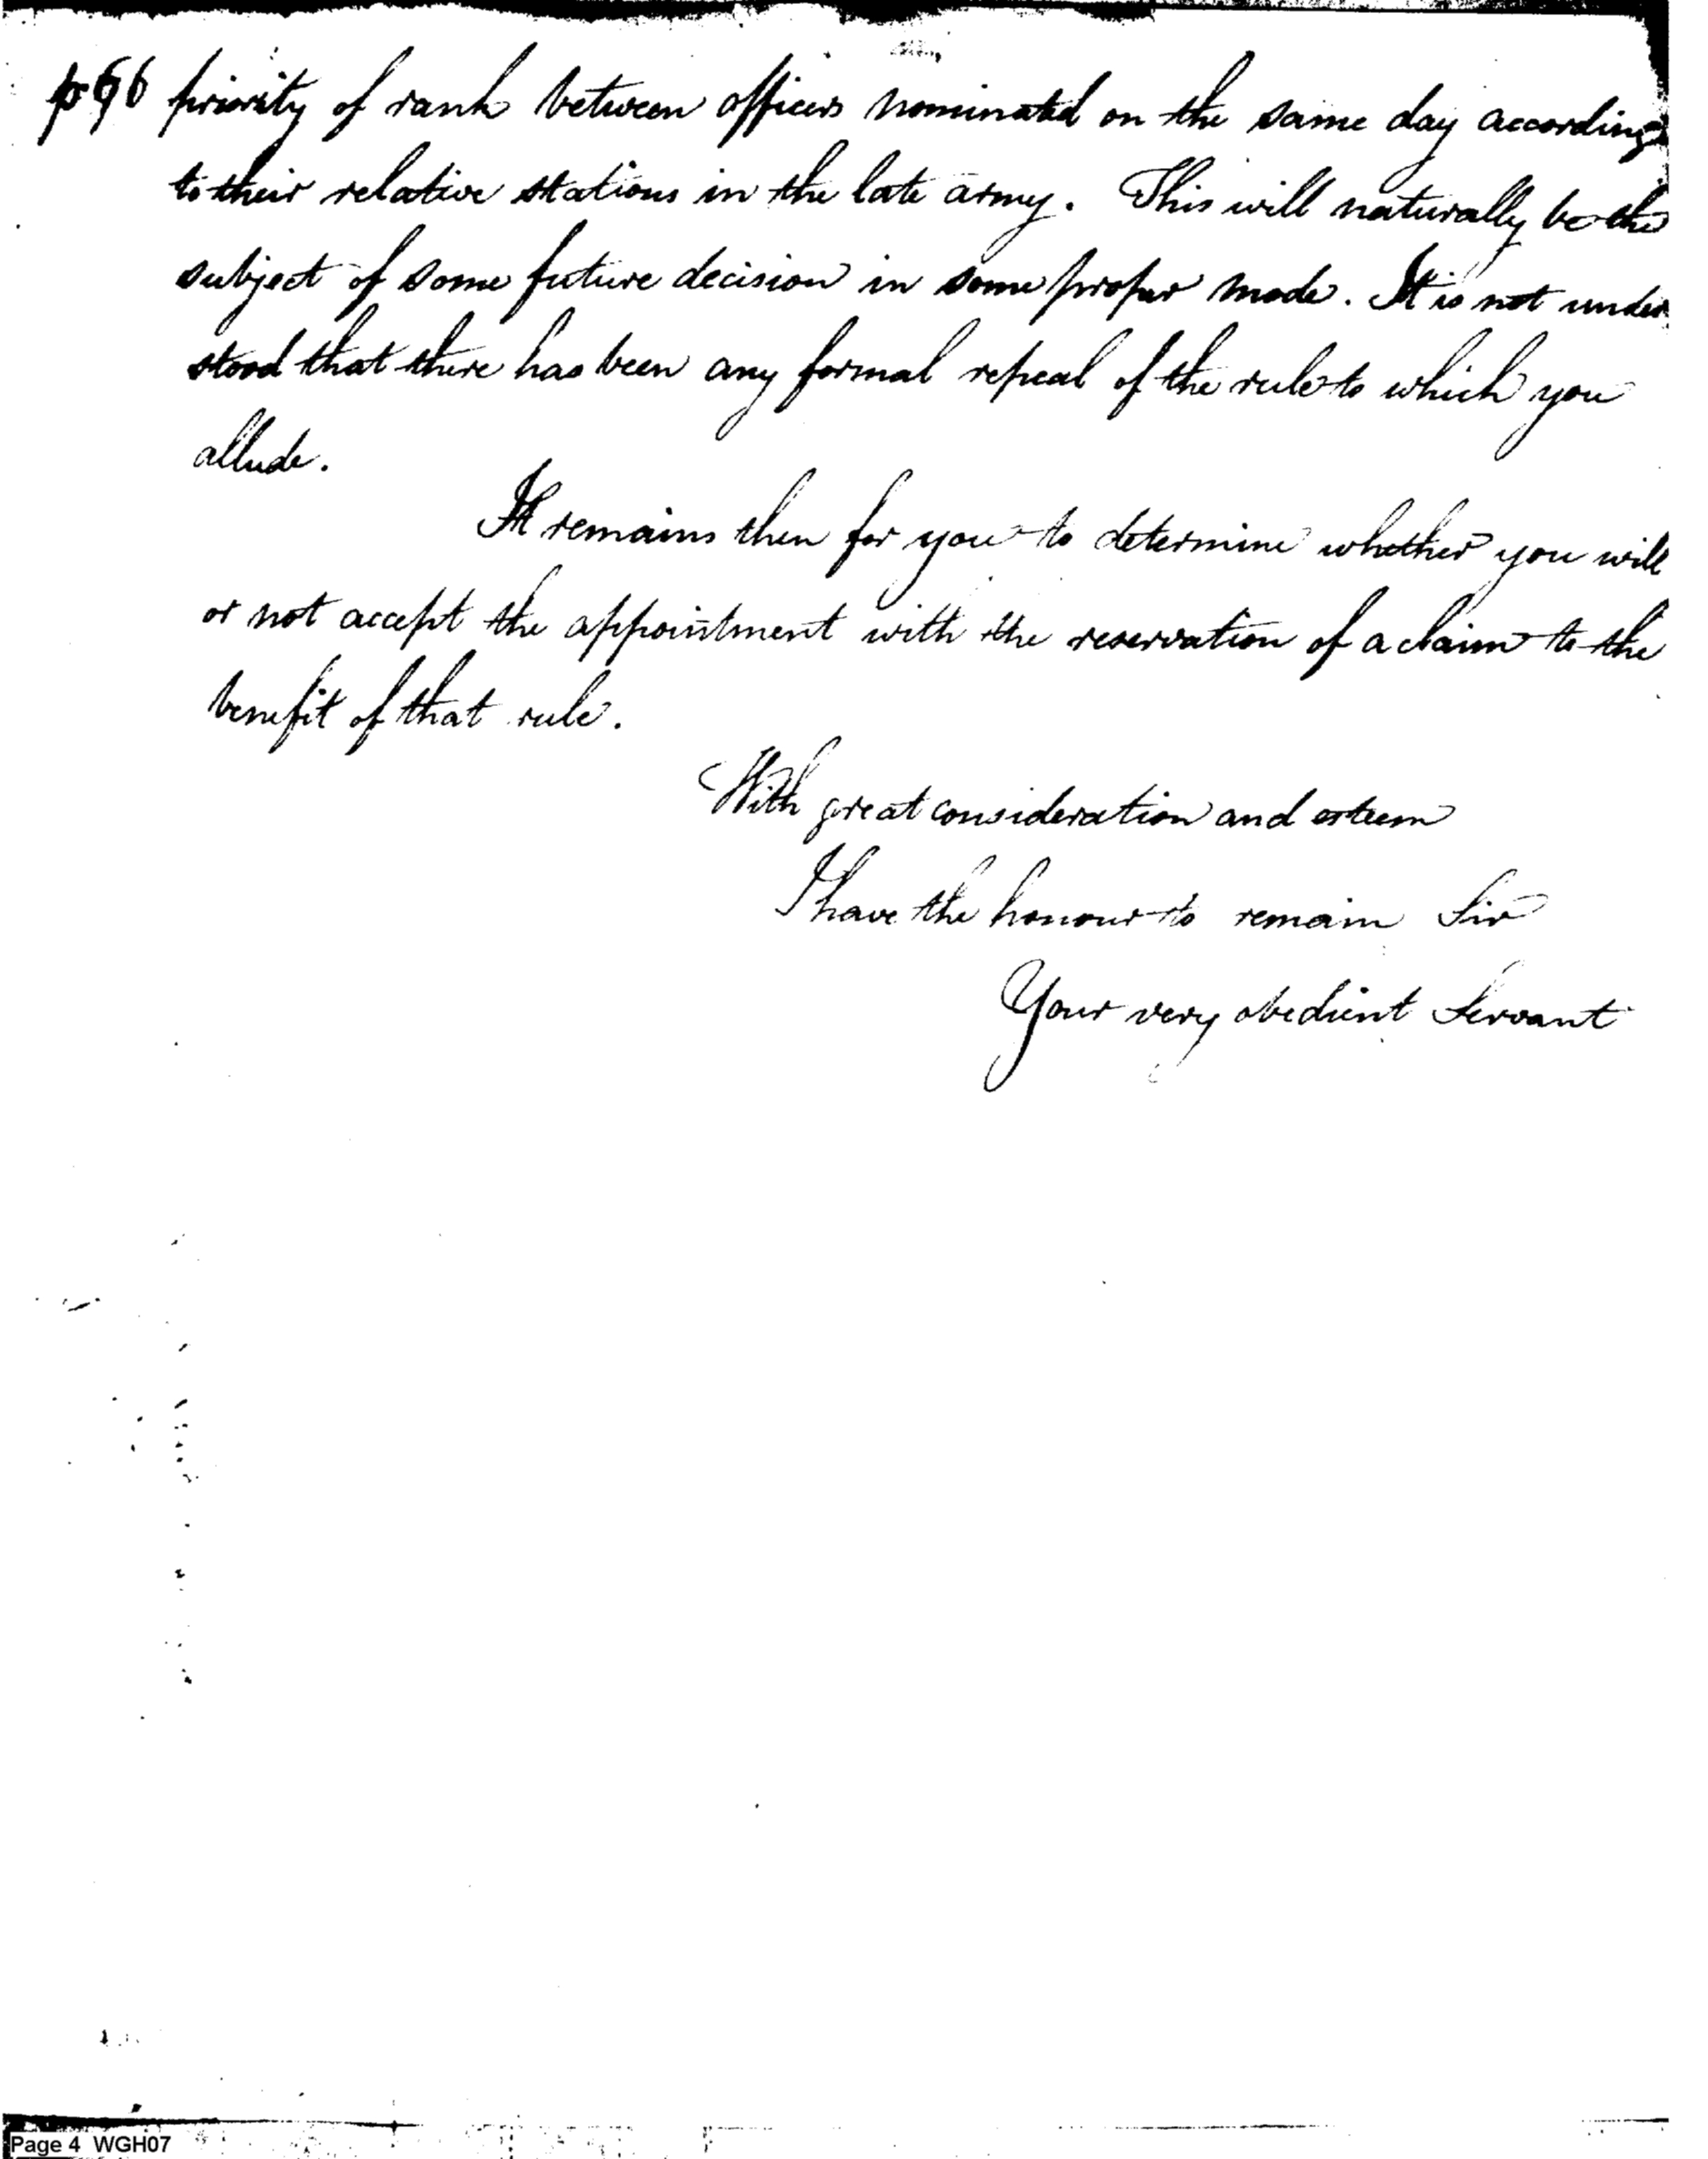 p 66 priority of rank between officers nominated on the same day according
to their relative stations in the late army. This will naturally be the
subject of some future decision in some proper mode. It is not under
stood that there has been any formal repeal of the rule to which you
allude.
It remains then for you to determine whether you will
or not accept the appointment with the reservation of a claim to the
benefit of that rule.
With great consideration and esteem
I have the honour to remain Sir
Your very obedient Servant
Page 4 WGH07